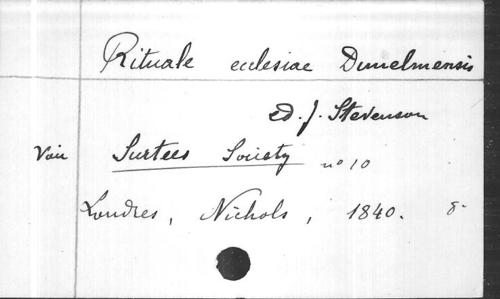 Rituale ecclesiae Dunelmensis
ed. J. Stevenson
Voir Surtees Society nº 10
Londres, Nichols, 1840. 8-